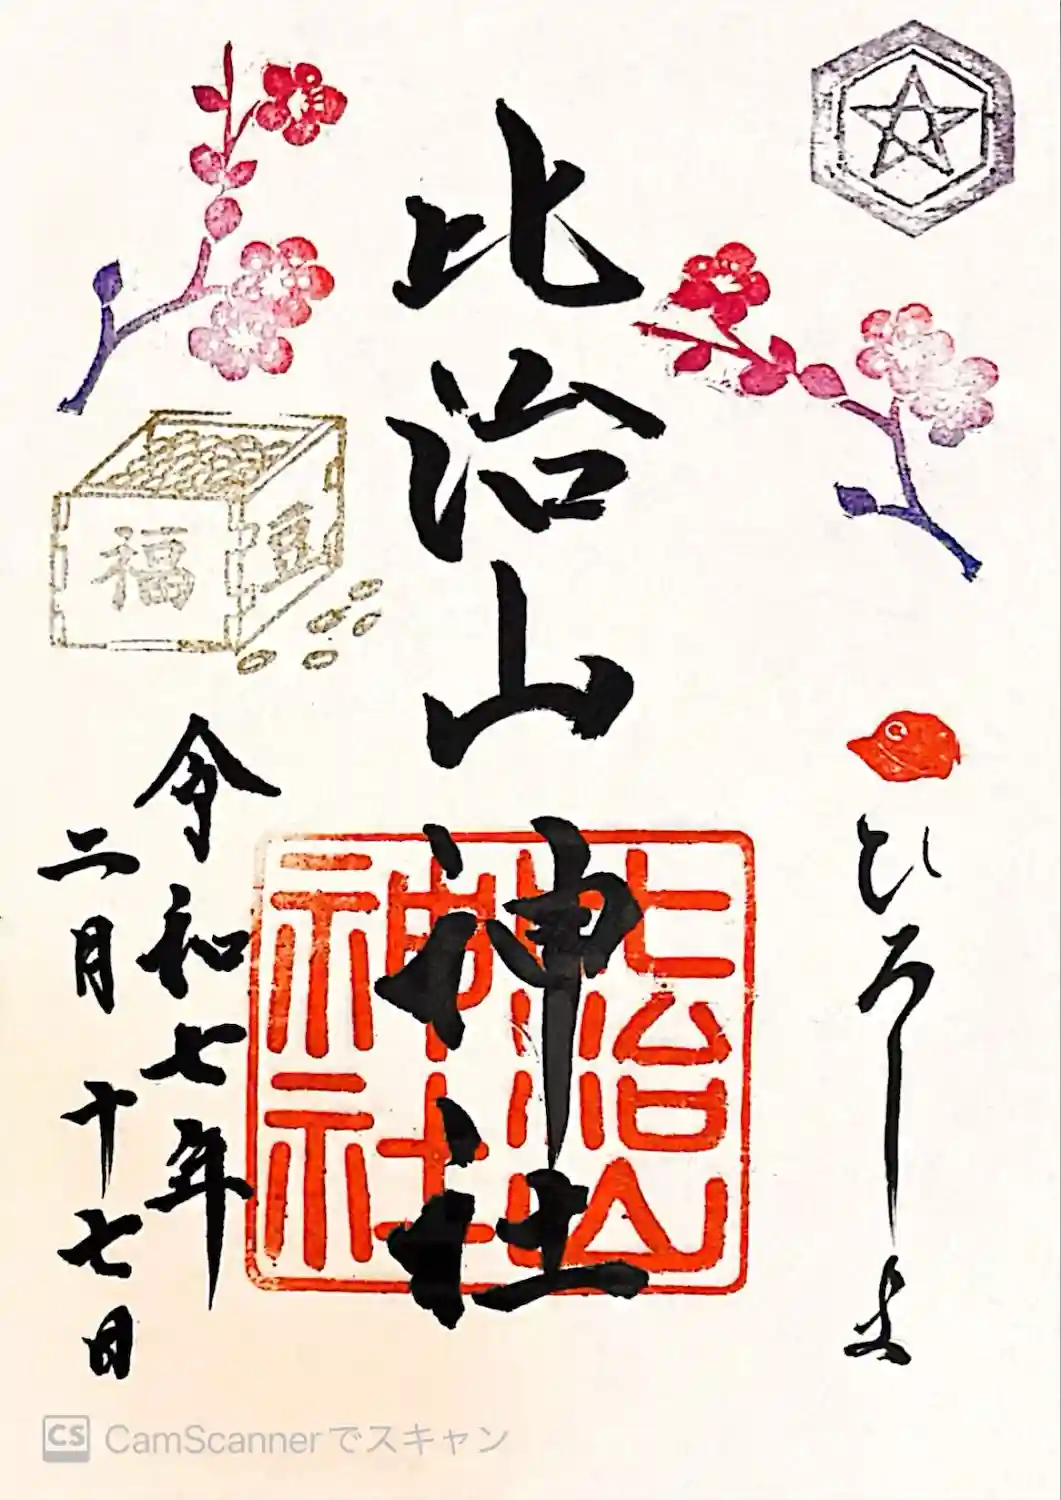 ひろしま
比治山神社
比治山
神社
福
豆
令和七年
二月十七日
CS CamScannerでスキャン